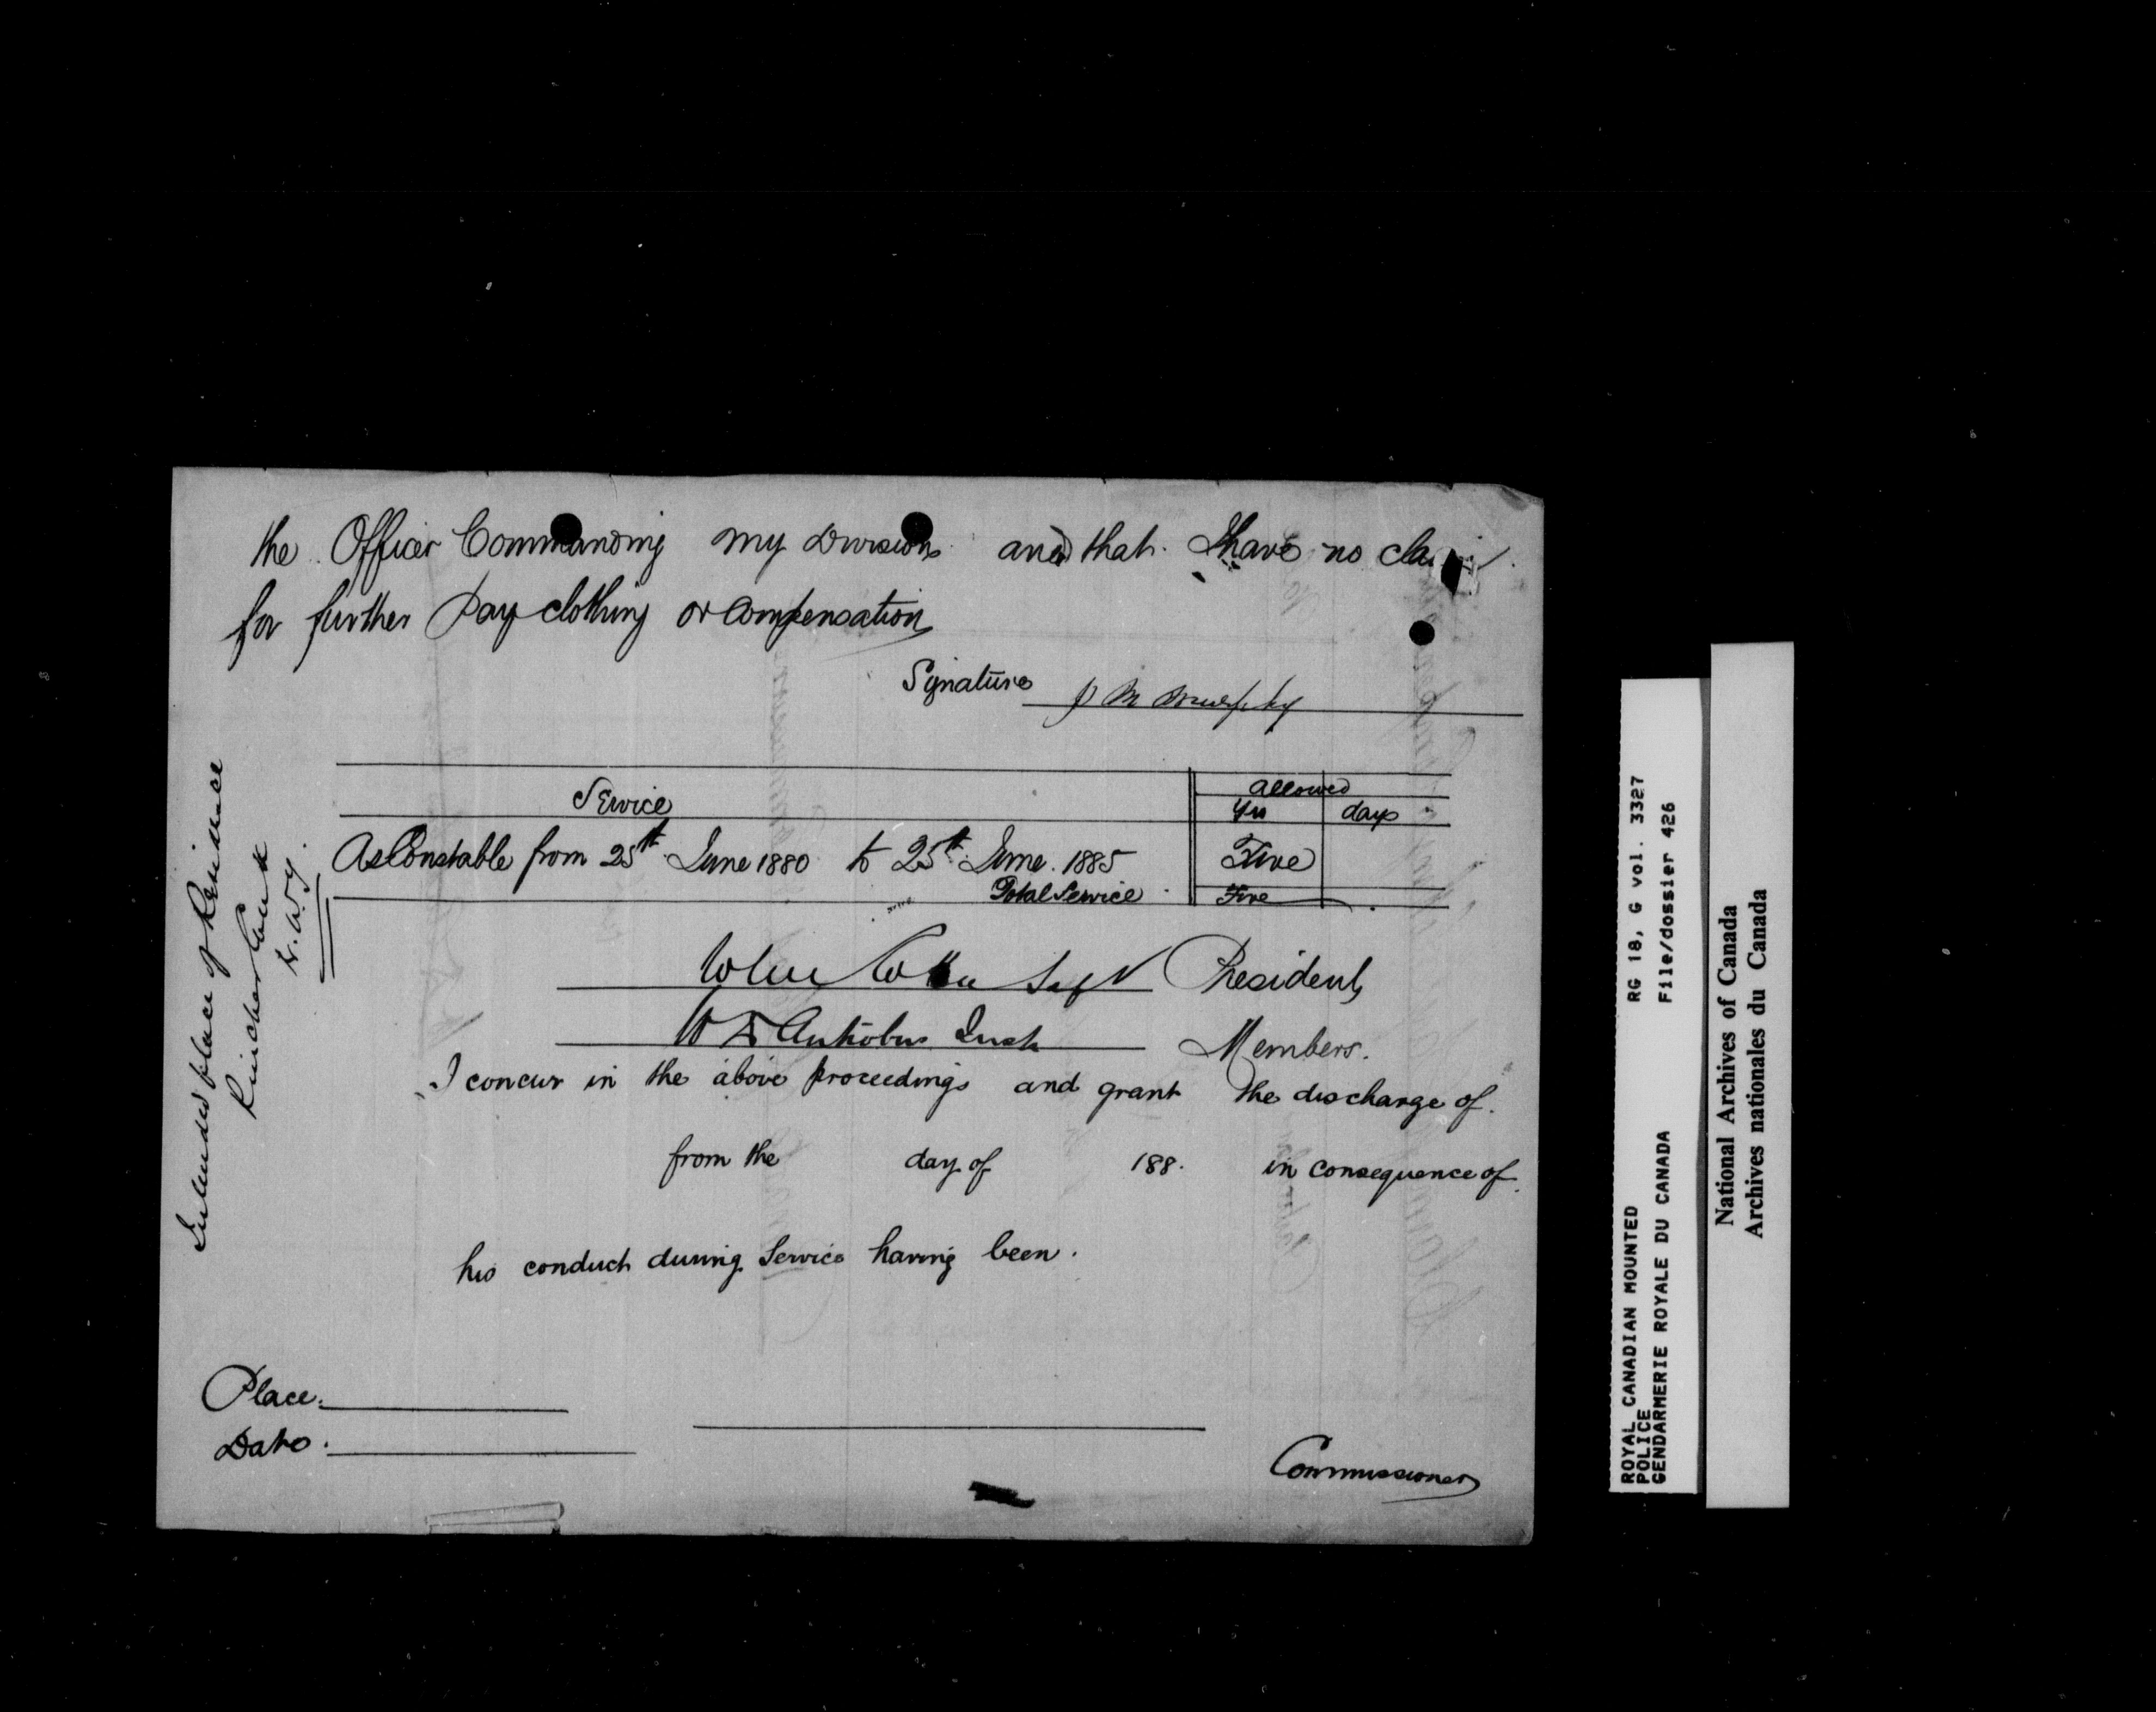 the Officer Commanding my Division and that I have no claim
for further Pay clothing or Compensation
Signature J M Murphy
Service
allowed
Yrs days
As Constable from 25th June 1880 to 25th June. 1885 Five
Total Service Five
Supt President
W D Antrobus Insp Members.
I concur in the above proceedings and grant the discharge of.
from the day of 188. in consequence of
his conduct during Service having been.
Place.
Date.
Commissioner
Intended place of Residence
Pincher Creek
N.W.T.
ROYAL CANADIAN MOUNTED RG 18, G vol. 3327
POLICE File/dossier 426
GENDARMERIE ROYALE DU CANADA
National Archives of Canada
Archives nationales du Canada